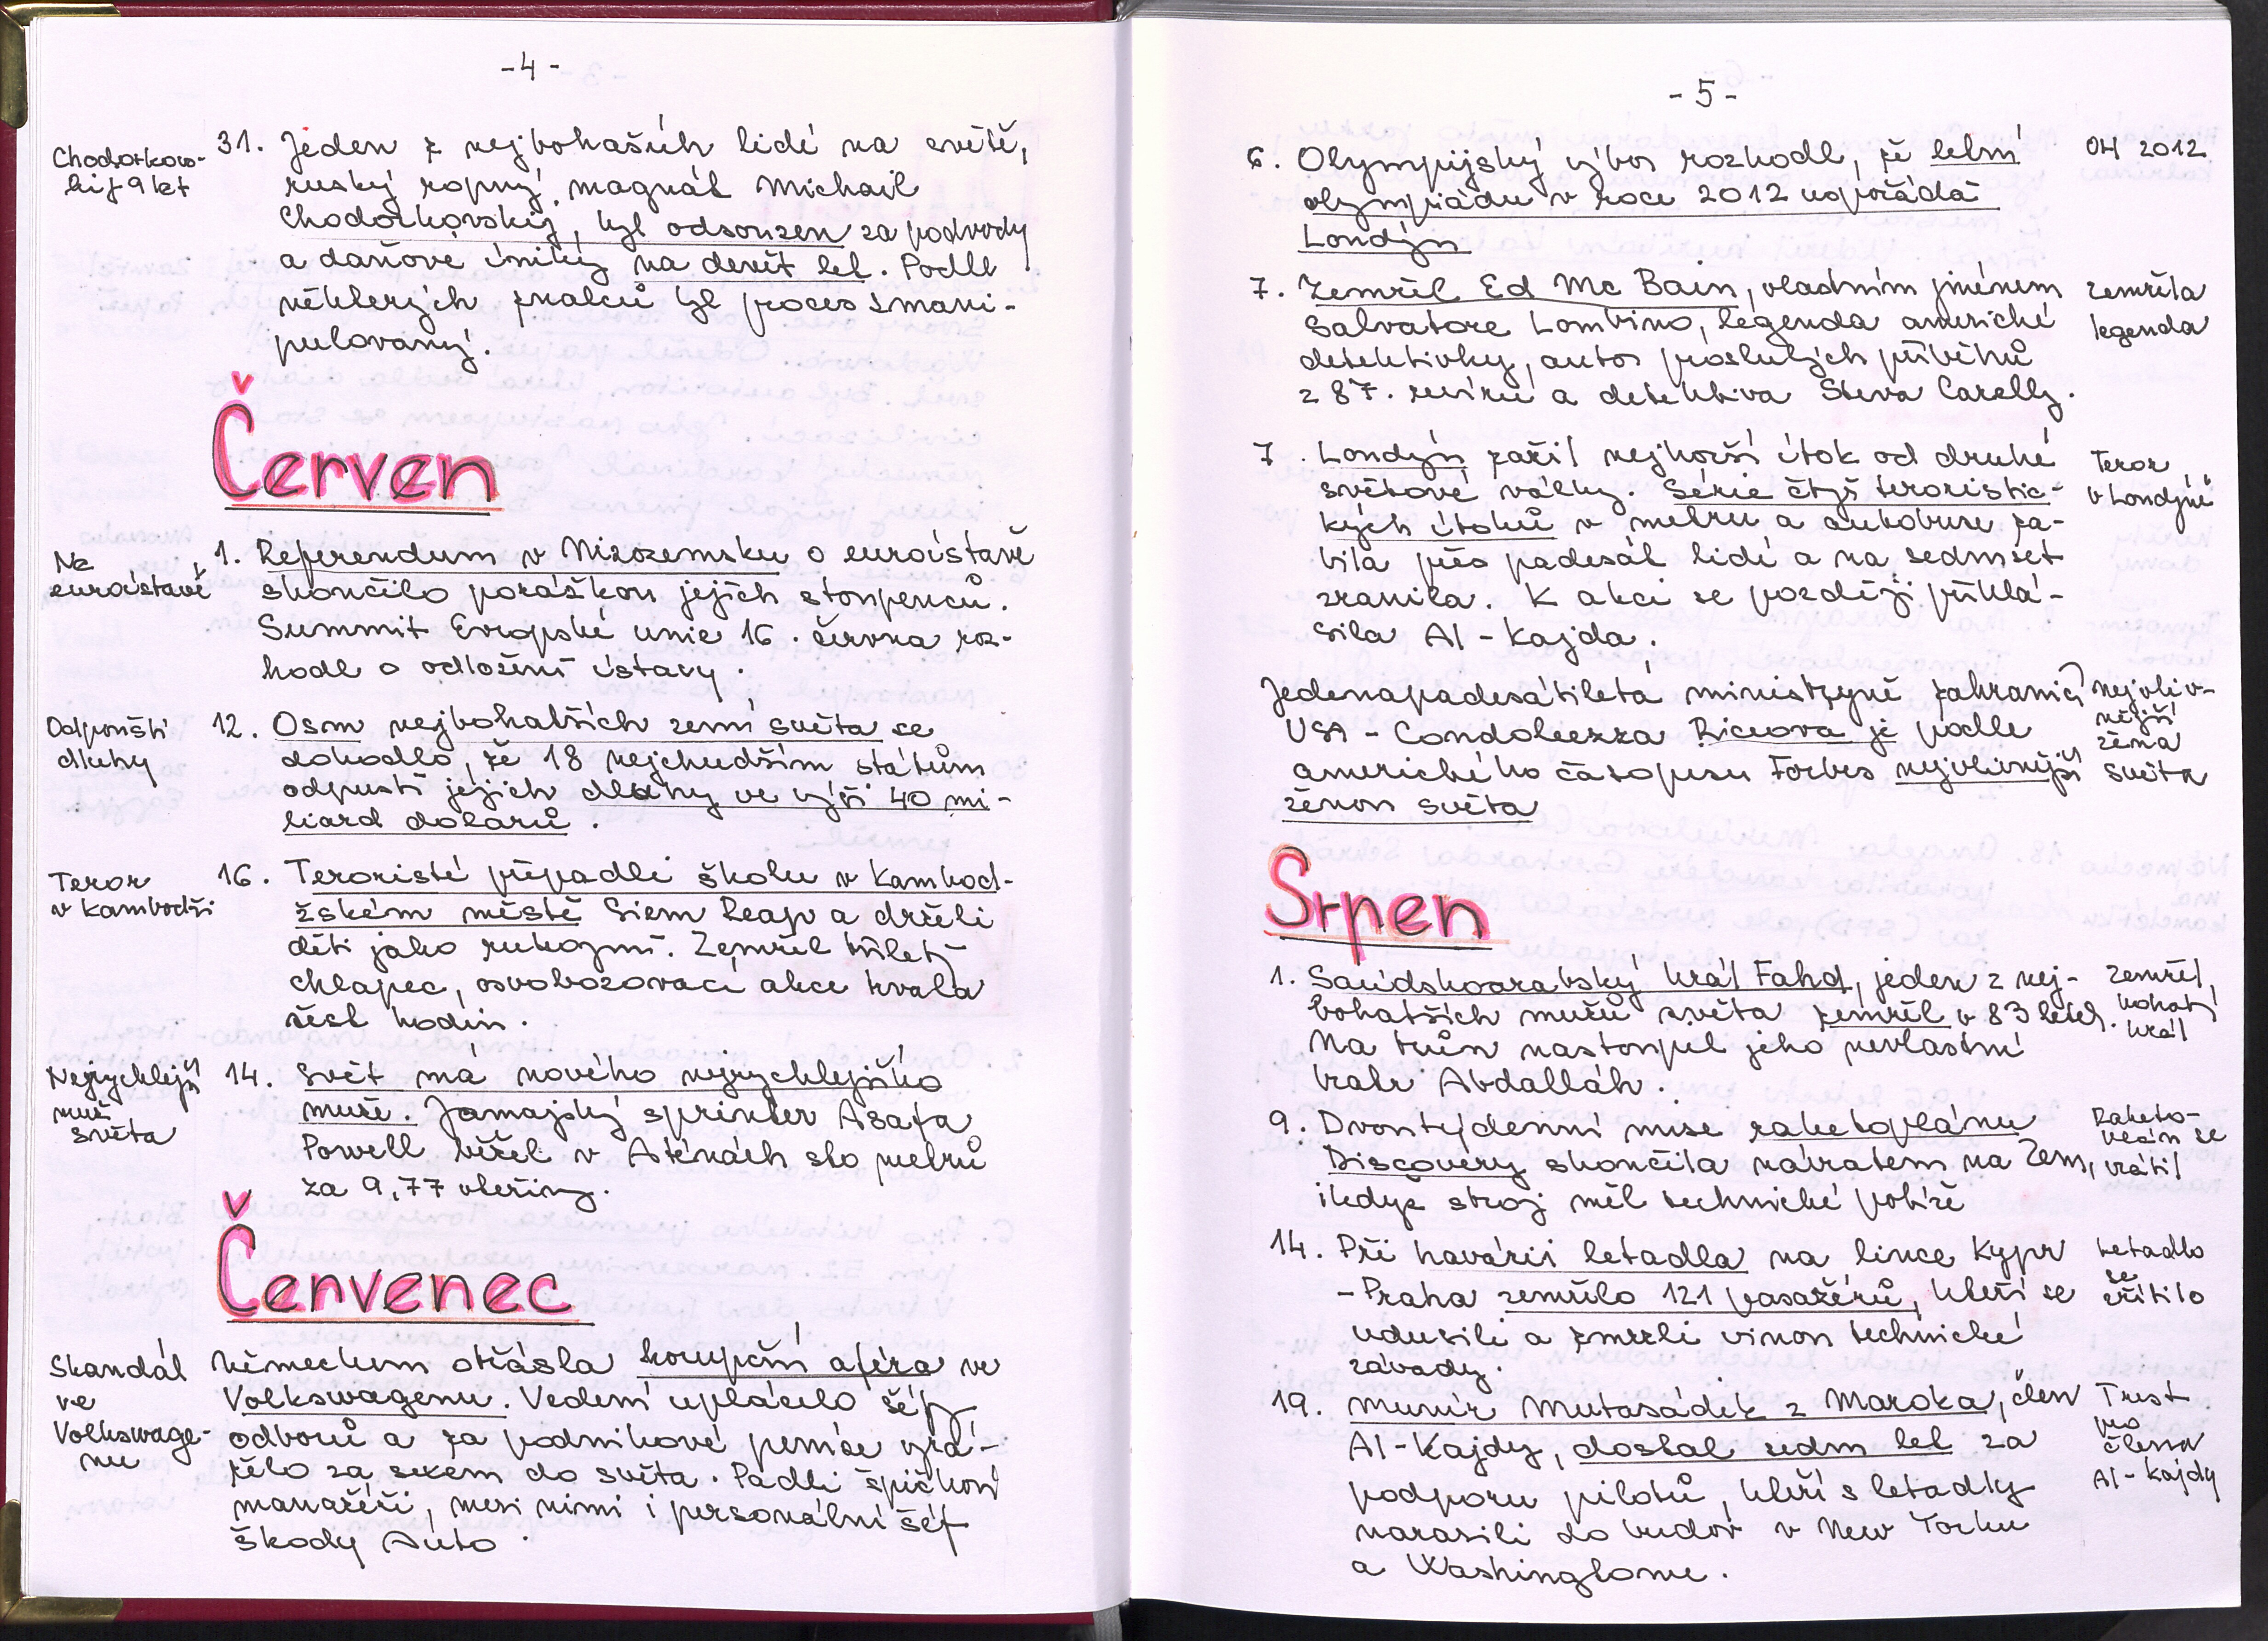 - 4 -
Chodorkov-
skij 9 let
31. Jeden z nejbohatších lidí na světě,
ruský ropný magnát Michail
Chodorkovskij, byl odsouzen za podvody
a daňové úniky na devět let. Podle
některých znalců byl proces zmani-
pulovaný.
Červen
Ne
euroústavě
1. Referendum v Nizozemsku o euroústavě
skončilo porážkou jejích stoupenců.
Summit Evropské unie 16. června roz-
hodl o odložení ústavy.
Odpouští
dluhy
12. Osm nejbohatších zemí světa se
dohodlo, že 18 nejchudším státům
odpustí jejich dluhy ve výši 40 mi-
liard dolarů.
Teror
v Kambodži
16. Teroristé přepadli školu v kambod-
žském městě Siem Reap a drželi
děti jako rukojmí. Zemřel tříletý
chlapec, osvobozovací akce trvala
šest hodin.
Nejrychlejší
muž
světa
14. Svět má nového nejrychlejšího
muže. Jamajský sprinter Asafa
Powell běžel v Aténách sto metrů
za 9,77 vteřiny.
Červenec
Skandál
ve
Volkswage-
nu
Německem otřásla korupční aféra ve
Volkswagenu. Vedení uplácelo šéfy
odborů a za podnikové peníze vyrá-
želo za sexem do světa. Padli špičkoví
manažéři, mezi nimi i personální šéf
Škody Auto.
- 5 -
6. Olympijský výbor rozhodl, že letní
olympiádu v roce 2012 uspořádá
Londýn
OH 2012
7. Zemřel Ed Mc Bain, vlastním jménem
Salvatore Lombino, legenda americké
detektivky, autor proslulých příběhů
z 87. revíru a detektiva Steva Carelly.
zemřela
legenda
7. Londýn zažil nejhorší útok od druhé
světové války. Série čtyř teroristic-
kých útoků v metru a autobuse za-
bila přes padesát lidí a na sedmset
zranila. K akci se později přihlá-
sila Al-Kajda.
Teror
v Londýně
Jedenapadesátiletá ministryně zahraničí
USA - Condoleezza Riceová je podle
amerického časopisu Forbes nejvlivnější
ženou světa
nejvliv-
nější
žena
světa
Srpen
1. Saúdskoarabský král Fahd, jeden z nej-
bohatších mužů světa zemřel v 83 letech.
Na trůn nastoupil jeho nevlastní
bratr Abdalláh.
zemřel
bohatý
král
9. Dvoutýdenní mise raketoplánu
Discovery skončila návratem na Zem,
ikdyž stroj měl technické potíže
Raketo-
plán se
vrátil
14. Při havárii letadla na lince Kypr
- Praha zemřelo 121 pasažérů, kteří se
udusili a zmrzli vinou technické
závady.
Letadlo
se
zřítilo
19. Munír Mutasádik z Maroka, člen
Al-Kajdy, dostal sedm let za
podporu pilotů, kteří s letadly
narazili do budov v New Yorku
a Washingtonu.
Trest
pro
člena
Al-Kajdy